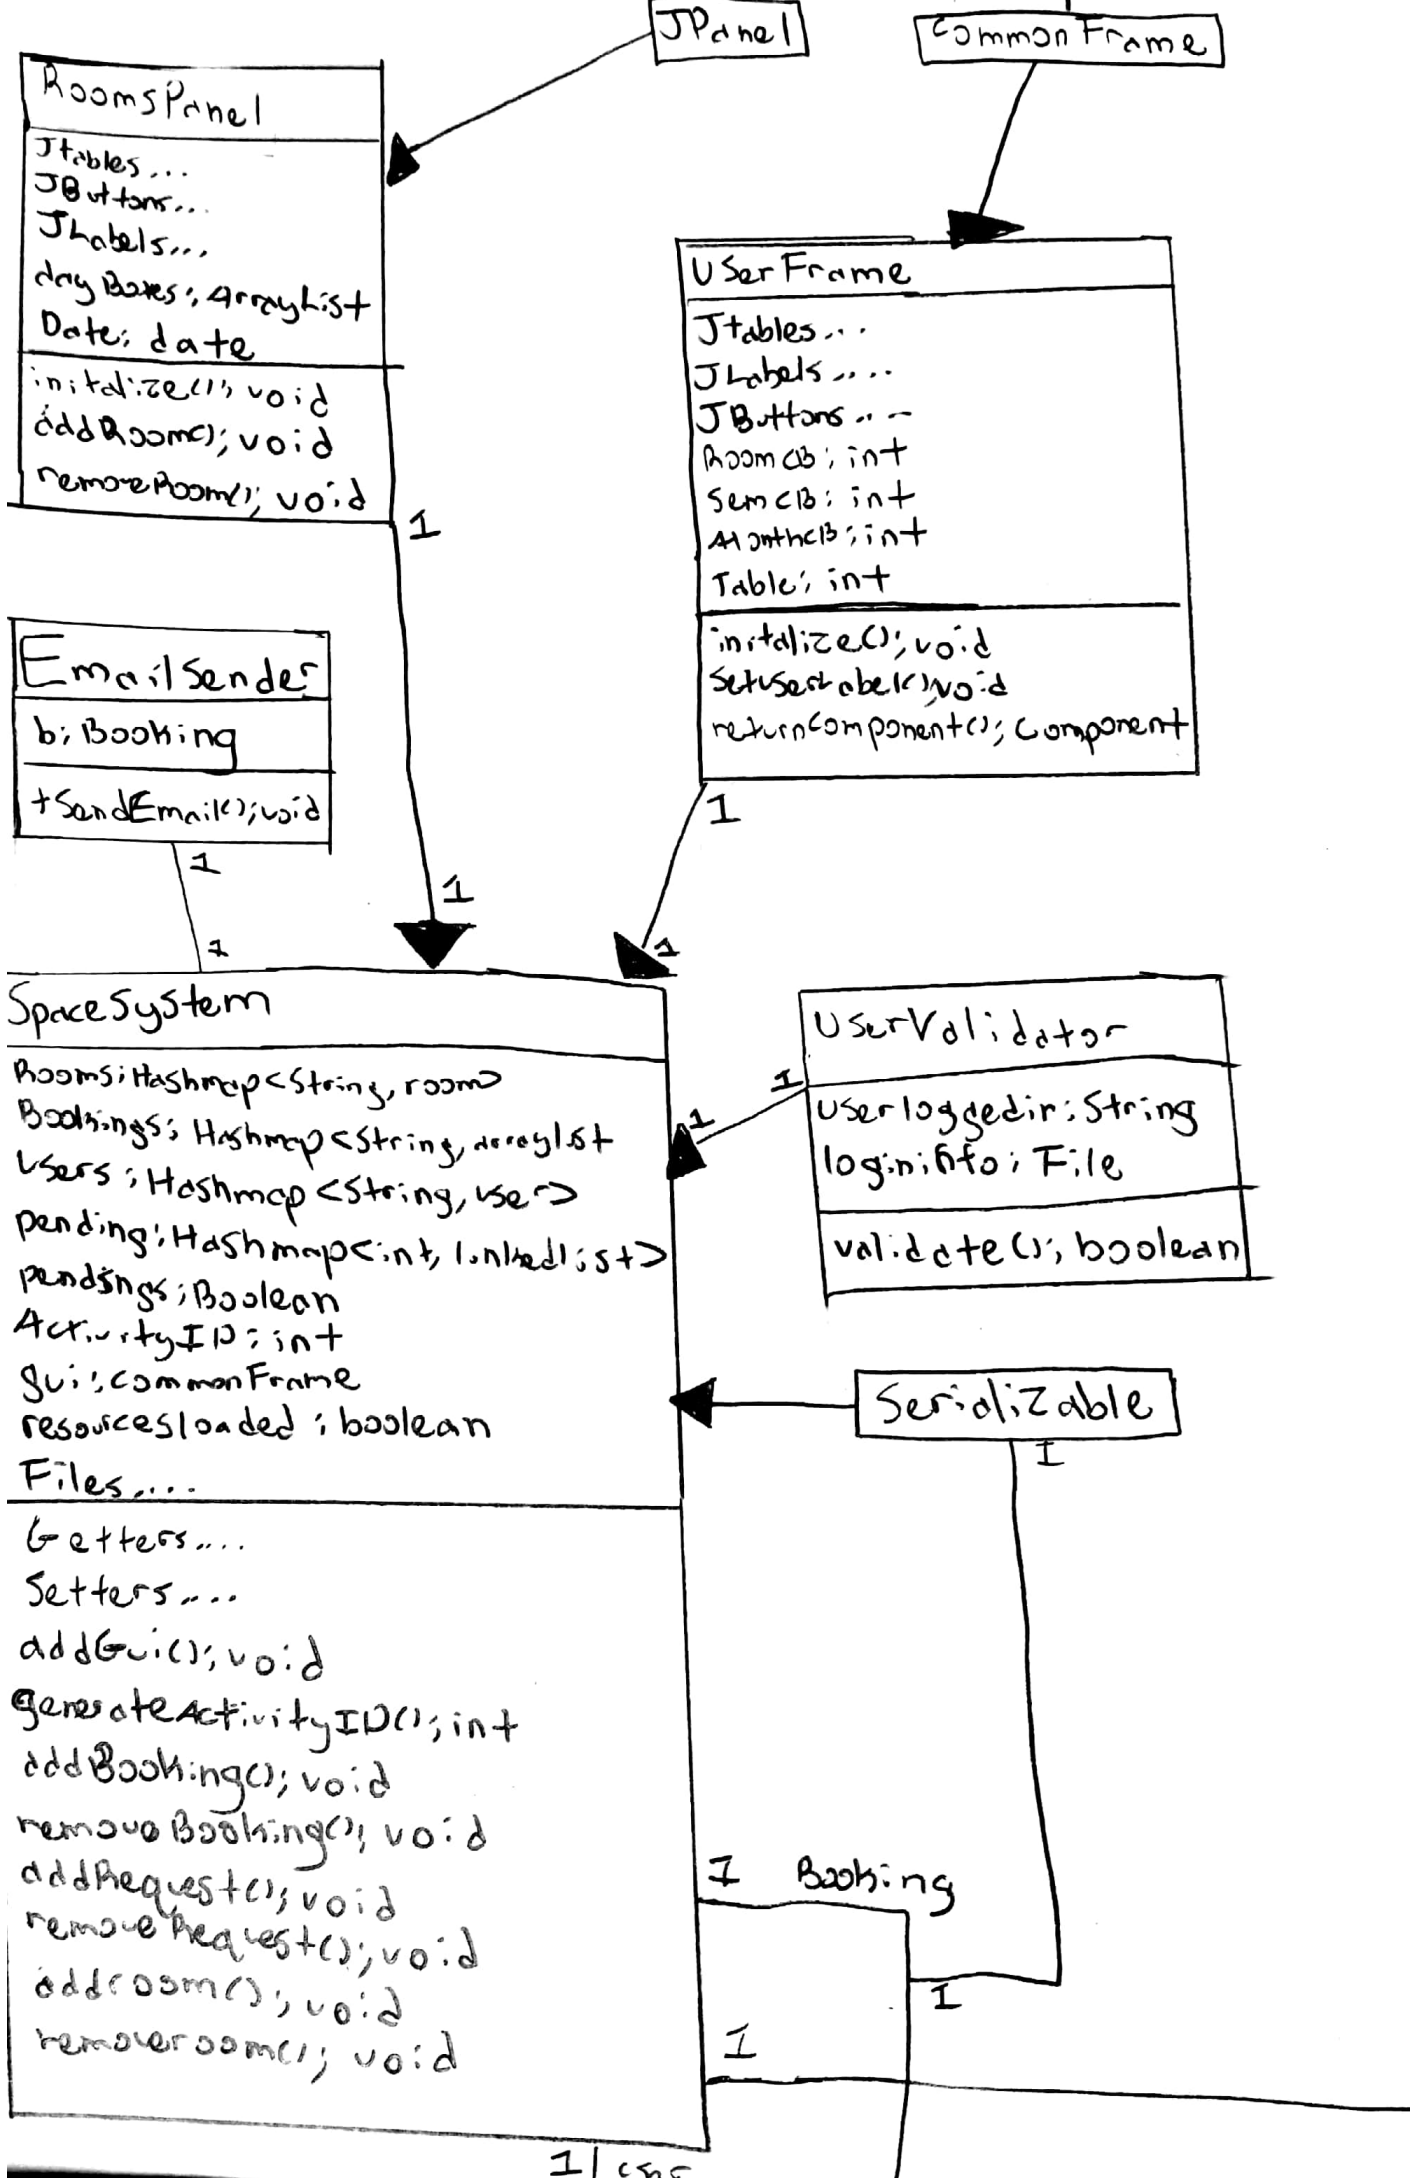 JPanel
CommonFrame
RoomsPanel
Jtables...
JButtons...
JLabels...
dayBoxes: ArrayList
Date: date
initalize(); void
addRoom(); void
removeRoom(); void
1
UserFrame
Jtables...
JLabels....
JButtons....
RoomCB: int
SemCB: int
MonthCB: int
Table: int
initalize(); void
SetUserLabel(); void
returnComponent(); Component
1
EmailSender
b: Booking
+SendEmail(); void
1
1
1
1
SpaceSystem
Rooms: Hashmap<String, room>
Bookings: Hashmap<String, arraylist
Users: Hashmap<String, user>
pending: Hashmap<int, linkedlist>
pendings: Boolean
ActivityID: int
gui: commonFrame
resourcesloaded: boolean
Files....
Getters....
Setters....
addGui(); void
generateActivityID(); int
addBooking(); void
removeBooking(); void
addRequest(); void
removeRequest(); void
addroom(); void
removeroom(); void
UserValidator
userloggedin: String
logininfo: File
validate(); boolean
1
1
Serializable
1
1 Booking
1
1
1